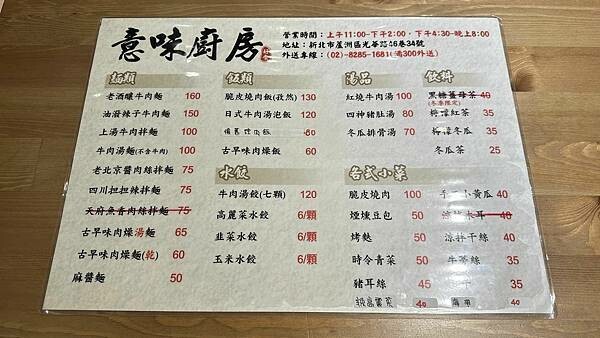 意味廚房
營業時間：上午11:00-下午2:00，下午4:30-晚上8:00
地址：新北市蘆洲區光華路46巷34號
外送專線：(02)-8285-1681(滿300外送)
麵類
老酒釀牛肉麵 160
油潑辣子牛肉麵 150
上湯牛肉拌麵 100
牛肉湯麵(不含牛肉) 100
老北京醬肉絲拌麵 75
四川担担辣拌麵 75
天府魚香肉絲拌麵 75
古早味肉燥湯麵 65
古早味肉燥麵(乾) 60
麻醬麵 50
飯類
脆皮燒肉飯(孜然) 130
日式牛肉湯泡飯 120
80
古早味肉燥飯 50
水餃
牛肉湯餃(七顆) 120
高麗菜水餃 6/顆
韭菜水餃 6/顆
玉米水餃 6/顆
湯品
紅燒牛肉湯 100
四神豬肚湯 80
冬瓜排骨湯 70
飲料
黑糖薑母茶 40
(冬季限定)
檸檬紅茶 35
檸檬冬瓜 35
冬瓜茶 25
各式小菜
脆皮燒肉 100
煙燻豆包 50
烤麩 50
時令青菜 50
豬耳絲 45
40
手工小黃瓜 40
涼拌木耳 40
涼拌干絲 40
牛蒡絲 35
35
海帶 40